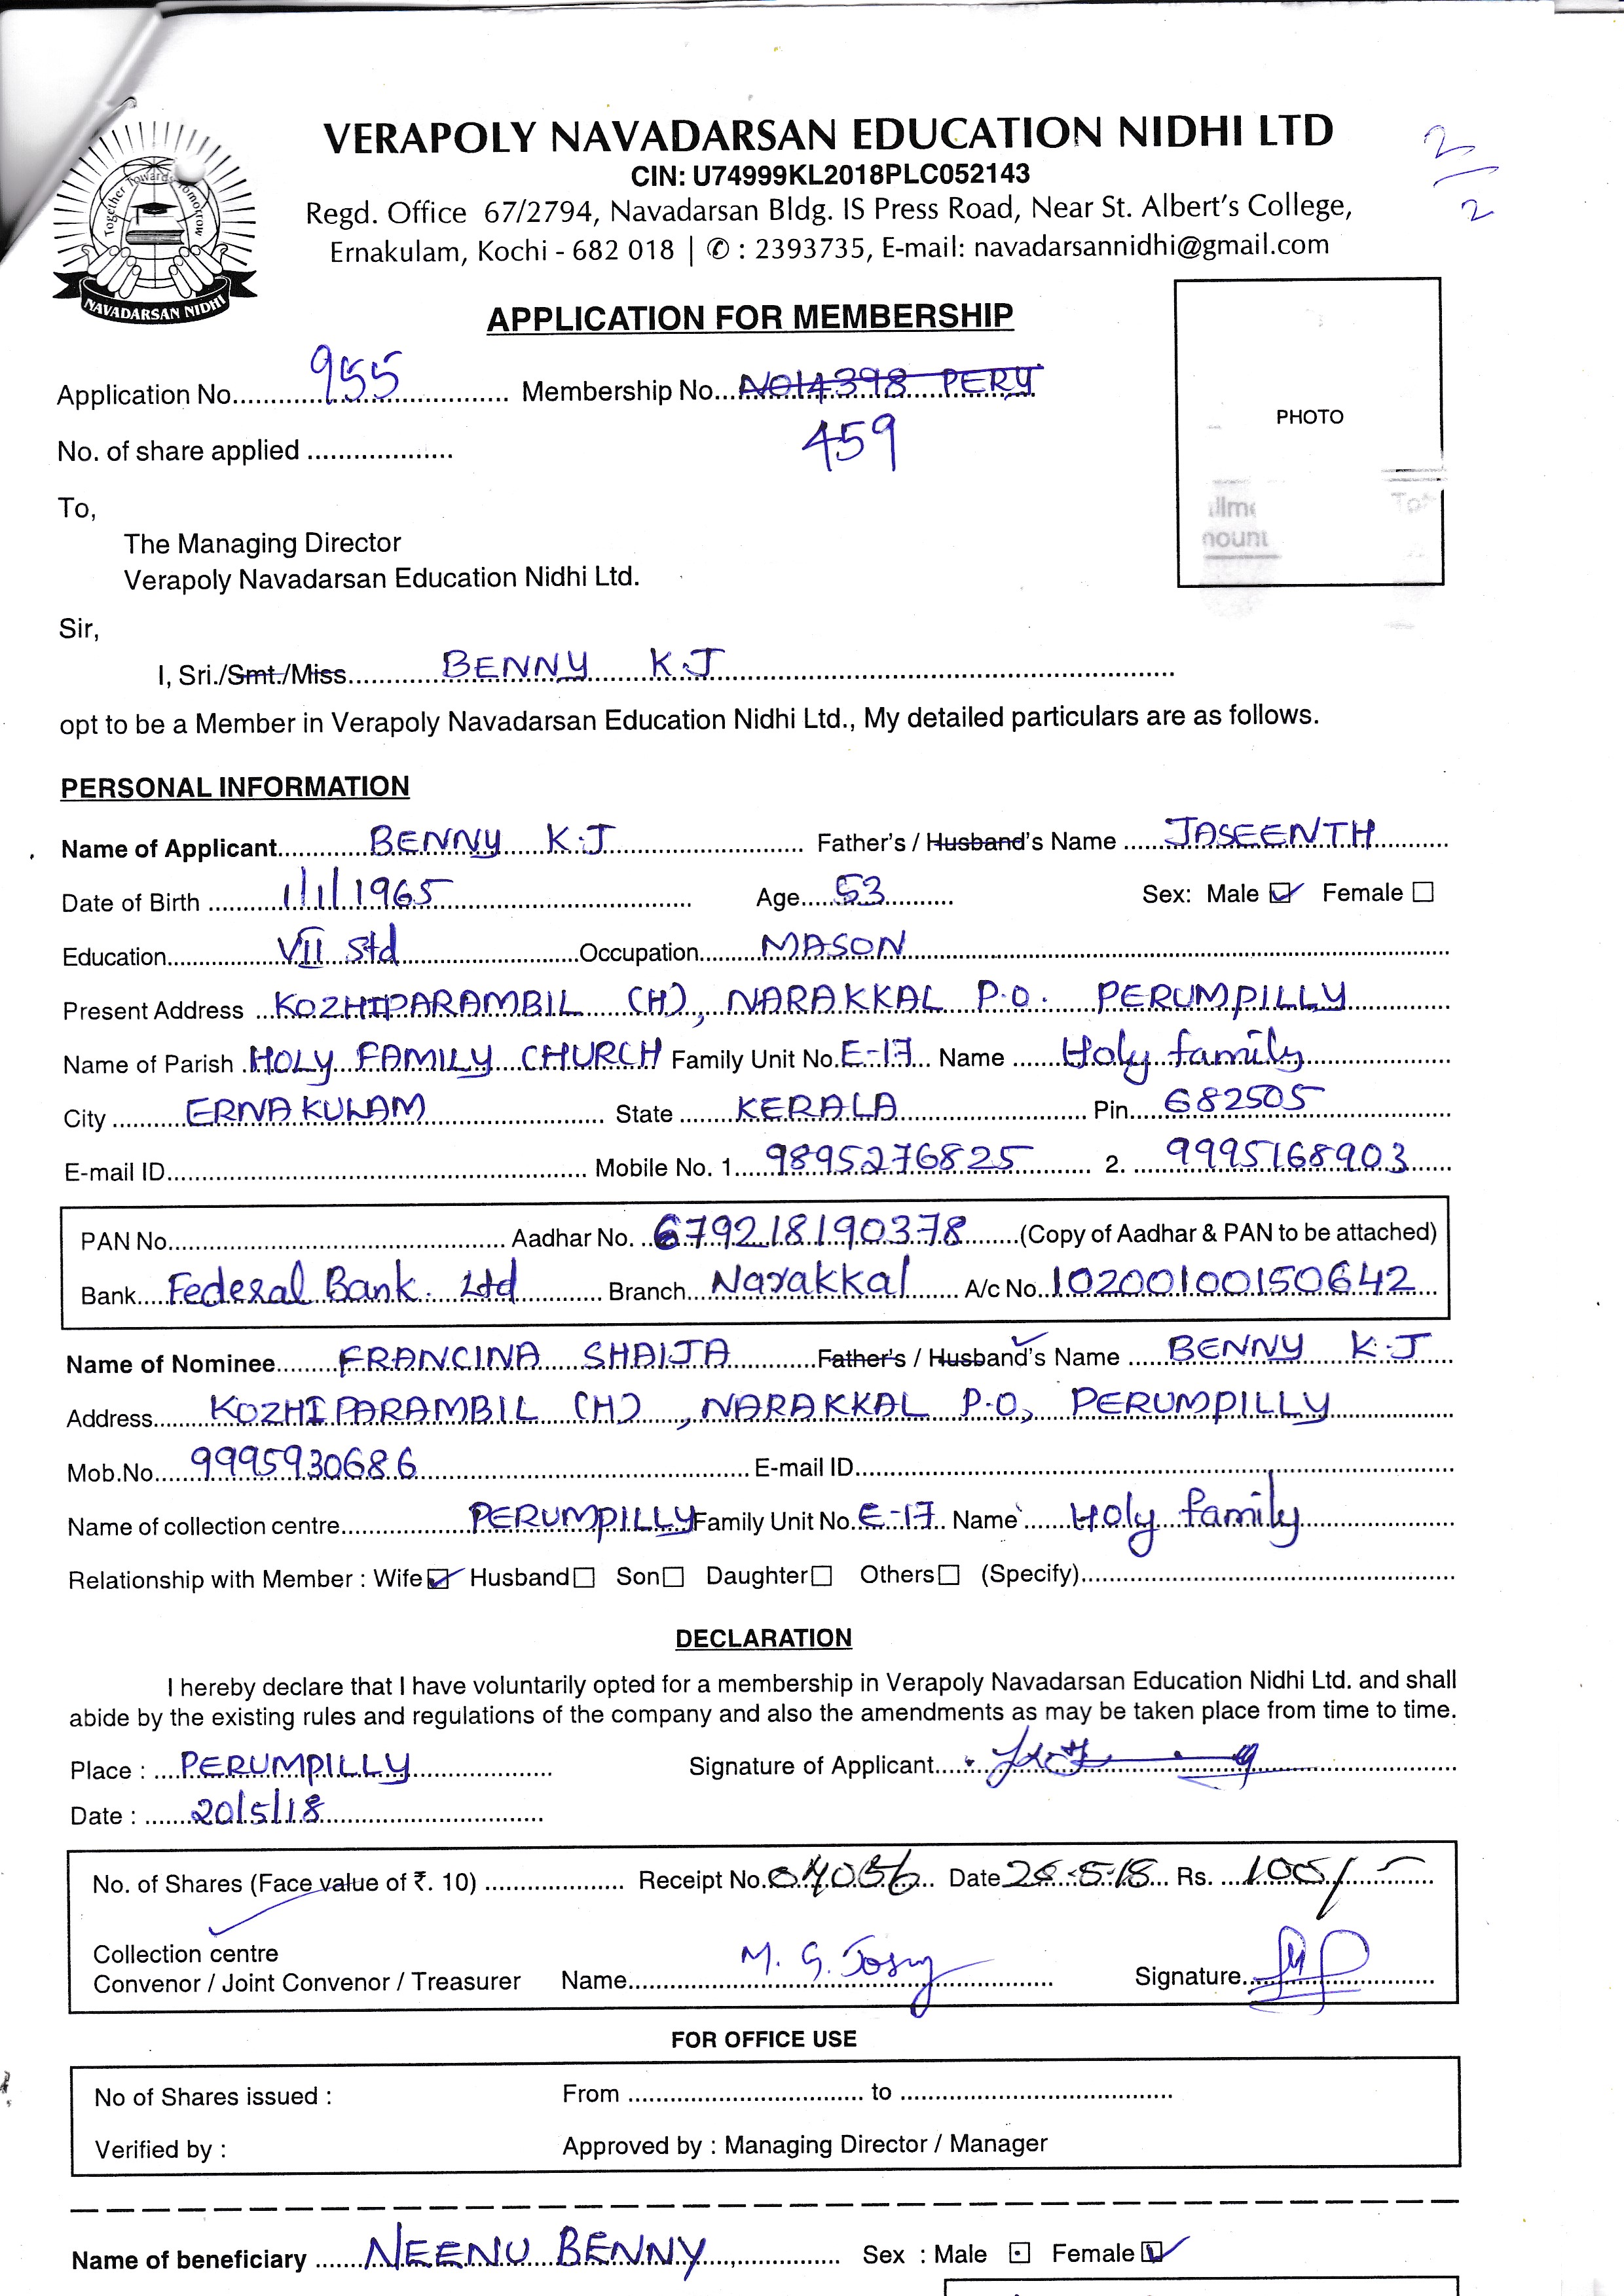 VERAPOLY NAVADARSAN EDUCATION NIDHI LTD
CIN: U74999KL2018PLC052143
Regd. Office 67/2794, Navadarsan Bldg. IS Press Road, Near St. Albert's College,
Ernakulam, Kochi - 682 018 | ✆ : 2393735, E-mail: navadarsannidhi@gmail.com
2/2
Together Towards Tomorrow
NAVADARSAN NIDHI
APPLICATION FOR MEMBERSHIP
Application No. 955 Membership No. N014398 PERY
459
No. of share applied ...................
PHOTO
To,
The Managing Director
Verapoly Navadarsan Education Nidhi Ltd.
Sir,
I, Sri./Smt./Miss. BENNY K.J
opt to be a Member in Verapoly Navadarsan Education Nidhi Ltd., My detailed particulars are as follows.
PERSONAL INFORMATION
Name of Applicant BENNY K.J Father's / Husband's Name JASEENTH
Date of Birth 1/1/1965 Age 53 Sex: Male ☑ Female ☐
Education VII Std Occupation MASON
Present Address KOZHIPARAMBIL (H), NARAKKAL P.O. PERUMPILLY
Name of Parish HOLY FAMILY CHURCH Family Unit No. E-17 Name Holy family
City ERNAKULAM State KERALA Pin 682505
E-mail ID Mobile No. 1 9895276825 2. 9995168903
PAN No. Aadhar No. 679218190378 (Copy of Aadhar & PAN to be attached)
Bank Federal Bank. Ltd Branch Narakkal A/c No. 10200100150642
Name of Nominee FRANCINA SHAIJA Father's / Husband's Name BENNY K.J
Address KOZHIPARAMBIL (H), NARAKKAL P.O, PERUMPILLY
Mob.No. 9995930686 E-mail ID
Name of collection centre PERUMPILLY Family Unit No. E-17 Name Holy family
Relationship with Member : Wife ☑ Husband ☐ Son ☐ Daughter ☐ Others ☐ (Specify)
DECLARATION
I hereby declare that I have voluntarily opted for a membership in Verapoly Navadarsan Education Nidhi Ltd. and shall
abide by the existing rules and regulations of the company and also the amendments as may be taken place from time to time.
Place : PERUMPILLY Signature of Applicant
Date : 20/5/18
No. of Shares (Face value of ₹. 10) Receipt No. Date Rs. 100/-
Collection centre
Convenor / Joint Convenor / Treasurer Name M. G. Josy Signature
FOR OFFICE USE
No of Shares issued : From to
Verified by : Approved by : Managing Director / Manager
Name of beneficiary NEENU BENNY Sex : Male ☐ Female ☑